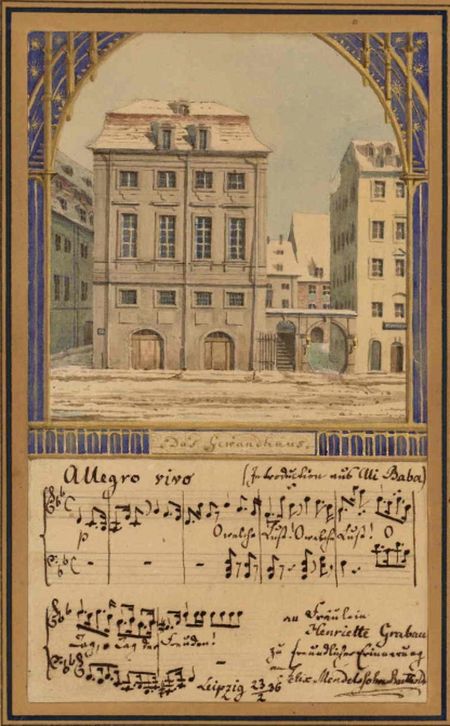 Das Gewandhaus.
Allegro vivo (Introduktion aus Ali Baba)
p O welche Lust! O welche Lust! O
Tag, o Tag der Freuden!
an Fräulein
Henriette Grabau
zu freundlicher Erinnerung
an Felix Mendelssohn Bartholdy
Leipzig 23/2 36